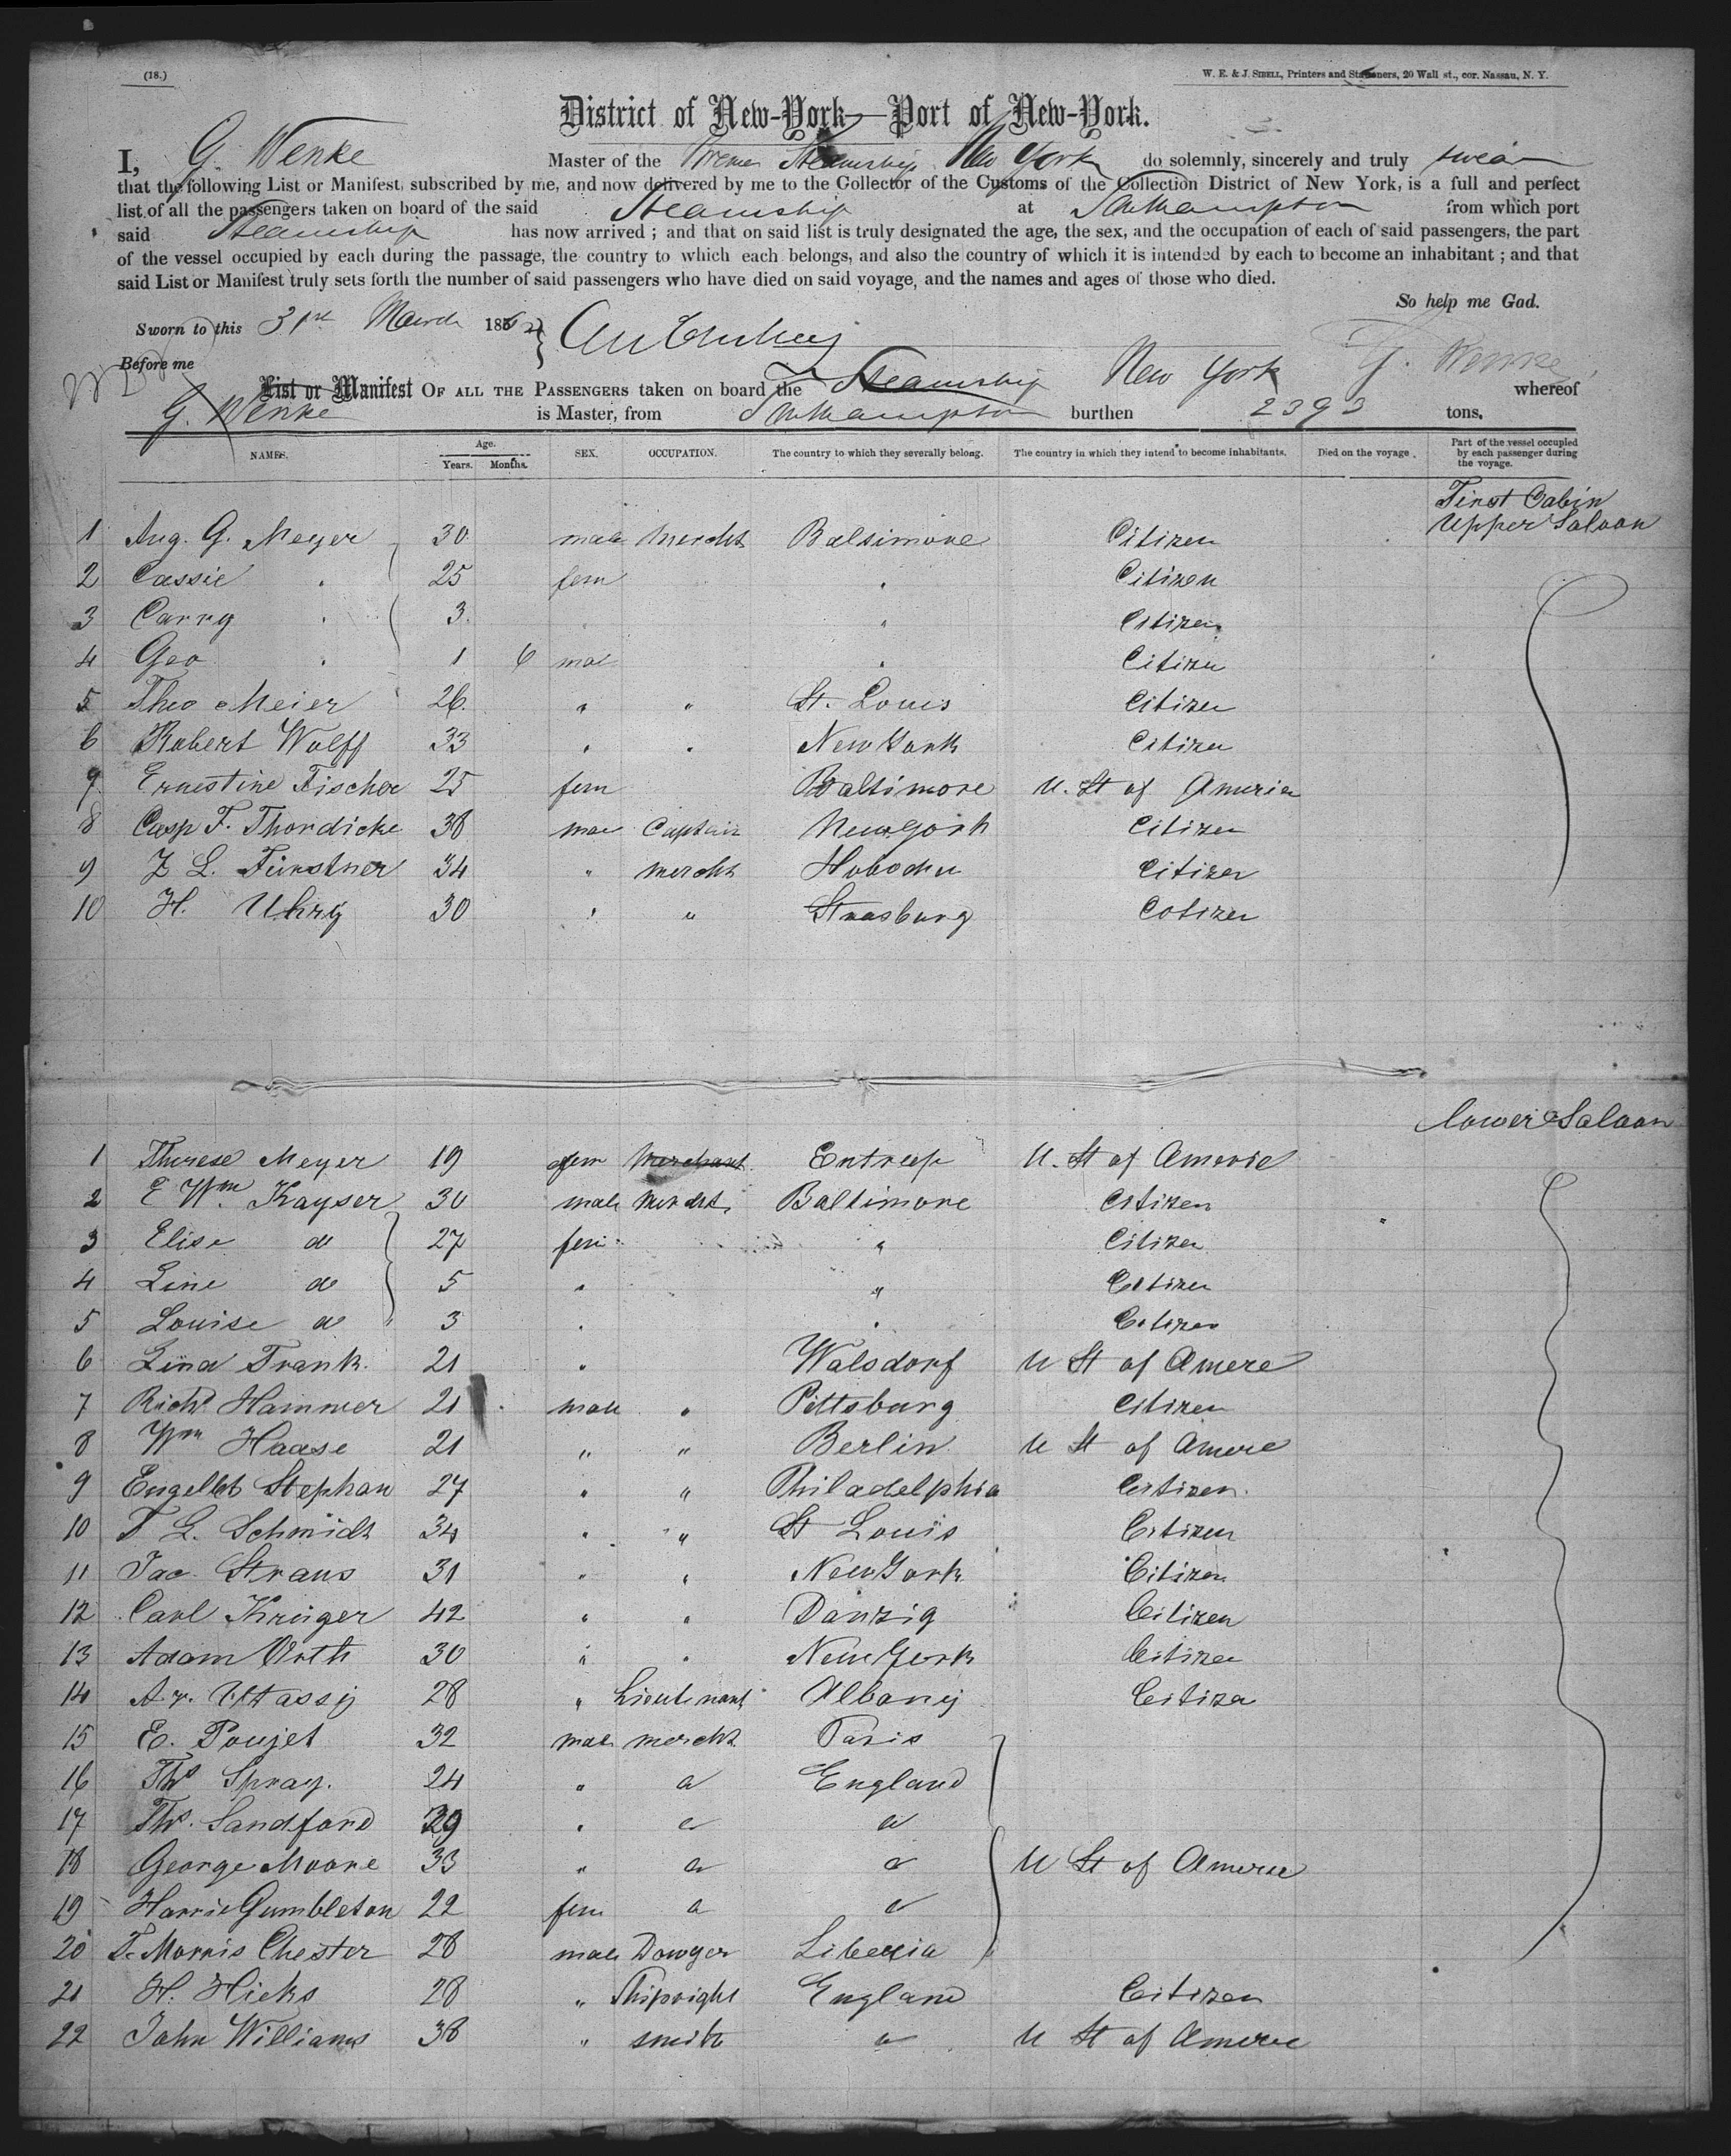 (18.)
W. E. & J. SIBELL, Printers and Stationers, 20 Wall st., cor. Nassau, N. Y.
District of New-York—Port of New-York.
I, G. Wenke Master of the Bremen Steamship New York do solemnly, sincerely and truly swear
that the following List or Manifest, subscribed by me, and now delivered by me to the Collector of the Customs of the Collection District of New York, is a full and perfect
list of all the passengers taken on board of the said Steamship at Southampton from which port
said Steamship has now arrived ; and that on said list is truly designated the age, the sex, and the occupation of each of said passengers, the part
of the vessel occupied by each during the passage, the country to which each belongs, and also the country of which it is intended by each to become an inhabitant ; and that
said List or Manifest truly sets forth the number of said passengers who have died on said voyage, and the names and ages of those who died.
So help me God.
Sworn to this 31st March 1862
Before me
G. Wenke
List or Manifest OF ALL THE PASSENGERS taken on board the Steamship New York whereof
G. Wenke is Master, from Southampton burthen 2393 tons.
NAMES. Age. Years. Months. SEX. OCCUPATION. The country to which they severally belong. The country in which they intend to become inhabitants. Died on the voyage. Part of the vessel occupied by each passenger during the voyage.
First Cabin
Upper Saloon
1 Aug. G. Meyer 30 male Mercht Baltimore Citizen
2 Cassie " 25 fem " Citizen
3 Carry " 3 " Citizen
4 Geo " 1 6 mal " Citizen
5 Theo Meier 26 " " St. Louis Citizen
6 Robert Wolff 33 " " New York Citizen
7 Ernestine Fischer 25 fem Baltimore U. St of America
8 Casp F. Thordicke 38 mae Captain New York Citizen
9 L. Fürstner 34 " mercht Hoboken Citizen
10 H. Uhrig 30 " " Strasburg Citizen
Lower Saloon
1 Therese Meyer 19 fem Merchant U. St of Americ
2 E Wm. Kayser 30 male Mercht. Baltimore Citizen
3 Elise do 27 fem " Citizen
4 Line do 5 " " Citizen
5 Louise do 3 " " Citizen
6 Lina Frank 21 " Walsdorf U St of Amere
7 Richd Hammer 21 male " Pittsburg Citizen
8 Wm Haase 21 " " Berlin U St of Amere
9 Stephan 27 " " Philadelphia Citizen
10 F L. Schmidt 34 " " St Louis Citizen
11 Jac. Straus 31 " " New York Citizen
12 Carl Krüger 42 " " Danzig Citizen
13 Adam Orth 30 " " New York Citizen
14 28 " Lieutnant Albany Citizen
15 E. Poujet 32 mal mercht Paris
16 Ths Spray. 24 " do England
17 Ths. Sandford 29 " do do
18 George Moore 33 " do do U St of Amere
19 Harrie Gumbleton 22 fem do do
20 T. Morris Chester 28 male Liberia
21 H. Hicks 28 " Shipright England Citizen
22 John Williams 38 " smith do U St of Amere